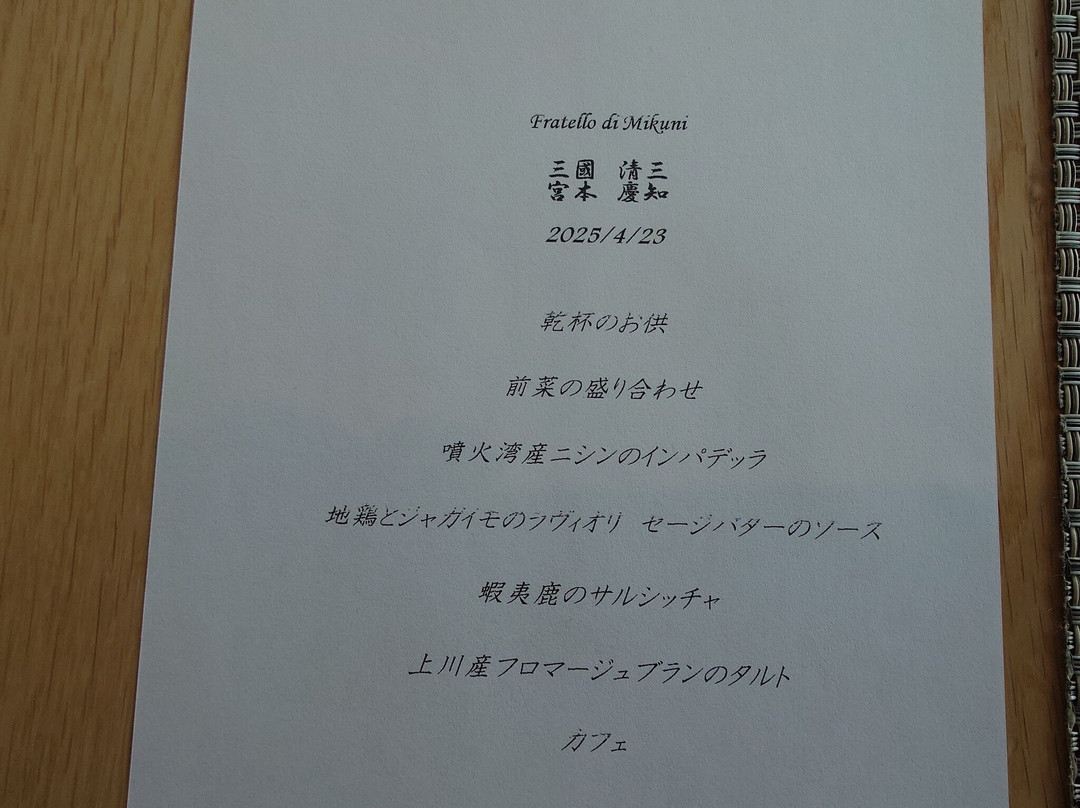 Fratello di Mikuni
三國　清三
宮本　慶知
2025/4/23
乾杯のお供
前菜の盛り合わせ
噴火湾産ニシンのインパデッラ
地鶏とジャガイモのラヴィオリ　セージバターのソース
蝦夷鹿のサルシッチャ
上川産フロマージュブランのタルト
カフェ